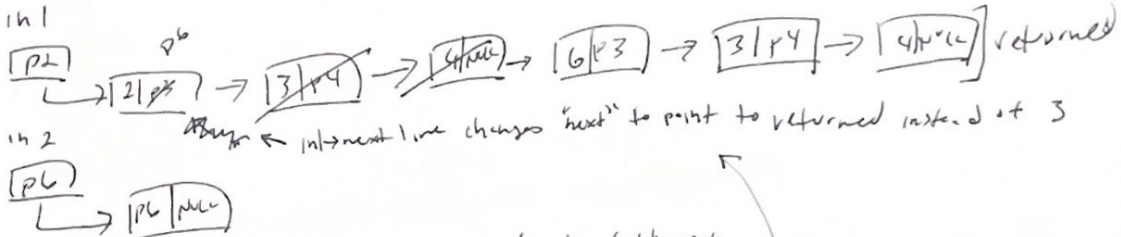 in 1
p6
p2 2|p3 3|p4 4|NULL 6|p3 3|p4 4|NULL ] returned
← in1→next line changes "next" to point to returned instead of 3
in 2
p6
p6|NULL